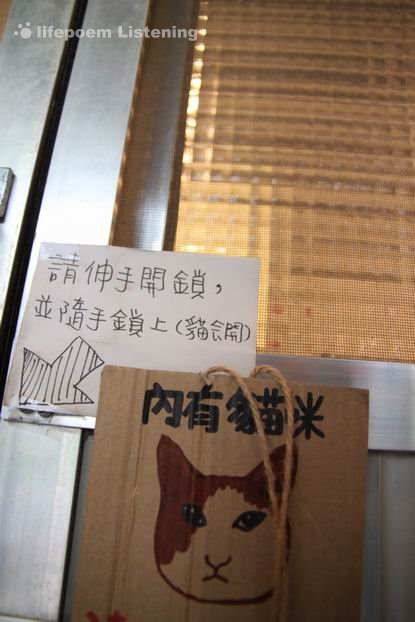 lifepoem Listening
請伸手開鎖，
並隨手鎖上(貓會開)
內有貓咪